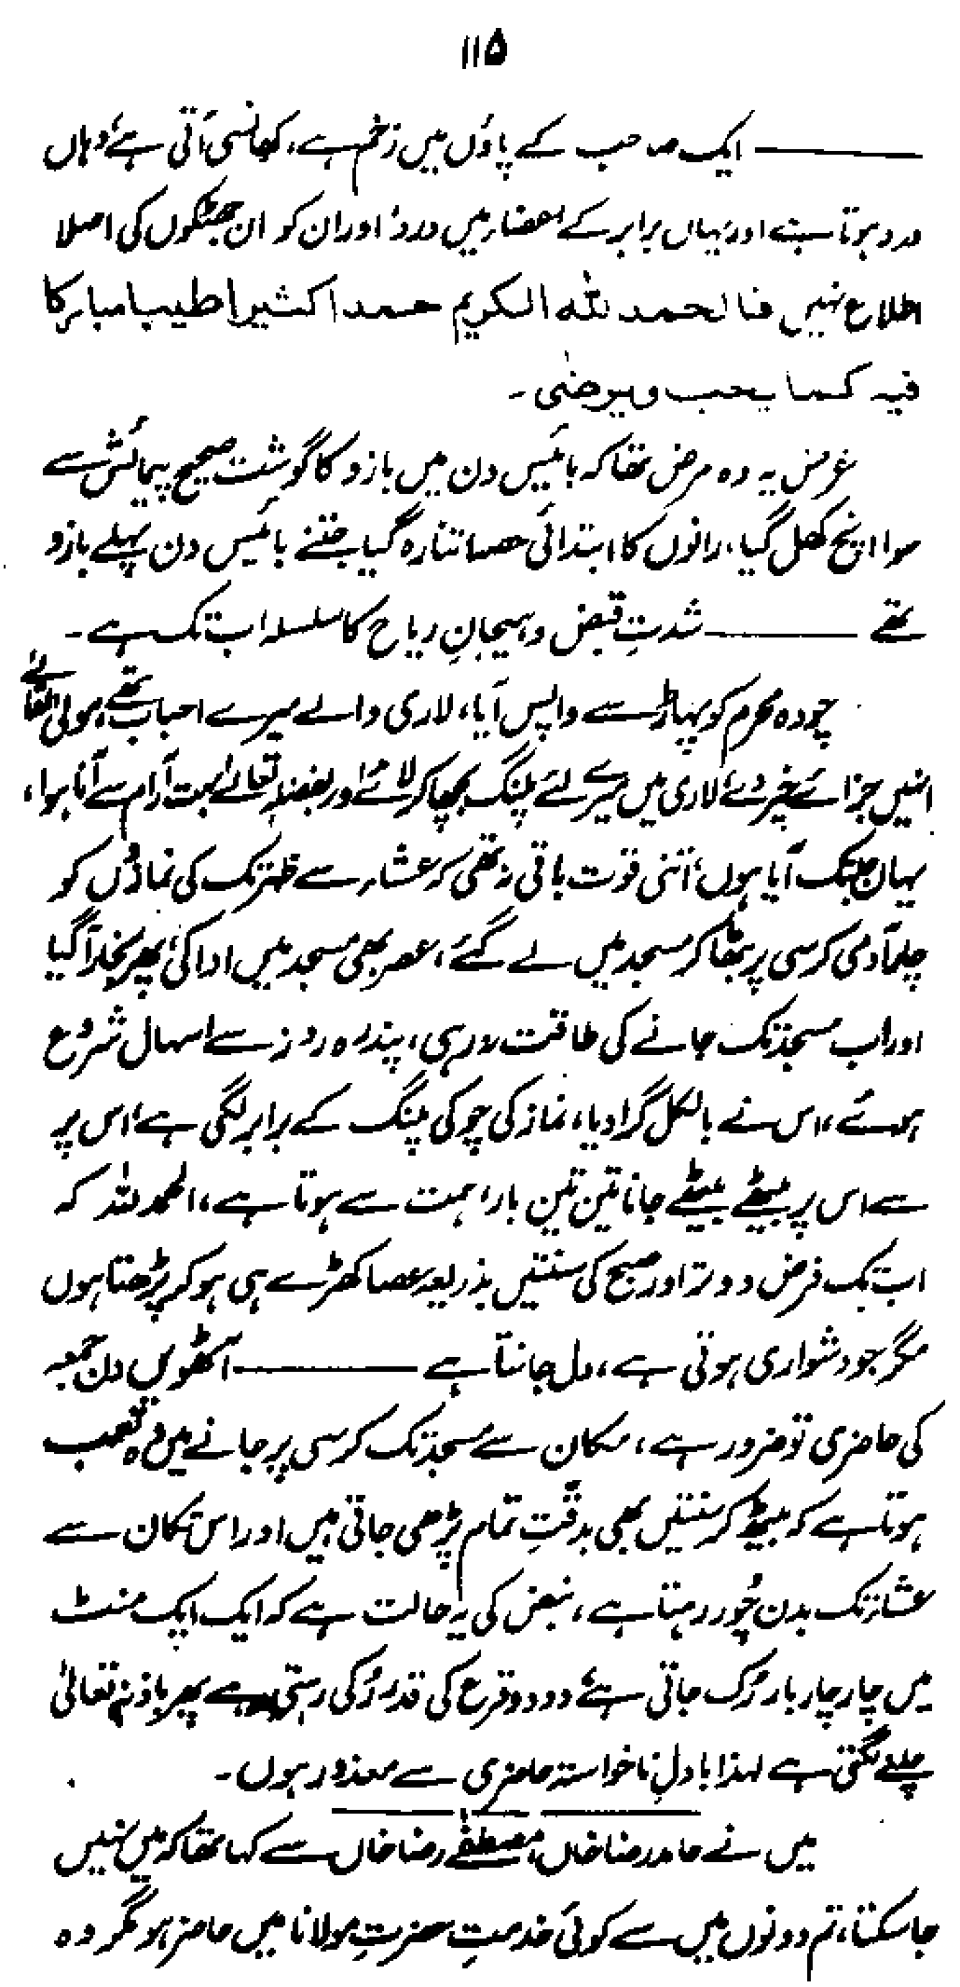 ۱۱۵
——— ایک صاحب کے پاؤں میں زخم ہے، کھانسی آتی ہے، وہاں
درد ہوتا ہے اور یہاں برابر کے اعضاء میں درد اور ان کو ان جھٹکوں کی اصلا
اطلاع نہیں فالحمد للہ الکریم حمدا کثیرا طیبا مبارکا
فیہ کما یحب ویرضیٰ۔
غرض یہ وہ مرض تھا کہ بائیس دن میں بازو کا گوشت صحیح پیمائش سے
سوا انچ گھل گیا، رانوں کا ابتدائی حصہ اتنا رہ گیا جتنے بائیس دن پہلے بازو
تھے ——— شدتِ قبض و ہیجانِ ریاح کا سلسلہ اب تک ہے۔
چودہ محرم کو پہاڑ سے واپس آیا، لاری والے میرے احباب تھے، مولیٰ تعالیٰ
انہیں جزائے خیر دے، لاری میں میرے لئے پلنگ بچھا کر لائے اور بفضلہ تعالےٰ بہت آرام سے آنا ہوا،
یہاں جبتک آیا ہوں، اتنی قوت باقی نہ تھی کہ عشاء سے ظہر تک کی نمازوں کو
چار آدمی کرسی پر بٹھا کر مسجد میں لے گئے، عصر بھی مسجد میں ادا کی، پھر بخار آگیا
اور اب مسجد تک جانے کی طاقت نہ رہی، پندرہ روز سے اسہال شروع
ہوئے، اس نے بالکل گرا دیا، نماز کی چوکی پلنگ کے برابر لگی ہے، اس پر
سے اس پر بیٹھے بیٹھے جانا تین تین بار، ہمت سے ہوتا ہے، الحمد للہ کہ
اب تک فرض و وتر اور صبح کی سنتیں بذریعہ عصا کھڑے ہی ہو کر پڑھتا ہوں
مگر جو دشواری ہوتی ہے، دل جانتا ہے ——— آٹھویں دن جمعہ
کی حاضری تو ضرور ہے، مکان سے مسجد تک کرسی پر جانے میں وہ تعب
ہوتا ہے کہ بیٹھ کر سنتیں بھی بدقّتِ تمام پڑھی جاتی ہیں اور اس تکان سے
عشاء تک بدن چُور رہتا ہے، نبض کی یہ حالت ہے کہ ایک ایک منٹ
میں چار چار بار رُک جاتی ہے، دو دو قرع کی قدر رُکی رہتی ہے پھر باذنہٖ تعالیٰ
چلنے لگتی ہے لہذا بادلِ ناخواستہ حاضری سے معذور ہوں۔
میں نے حامد رضا خاں، مصطفےٰ رضا خاں سے کہا تھا کہ میں نہیں
جا سکتا، تم دونوں میں سے کوئی خدمتِ حضرتِ مولانا میں حاضر ہو مگر وہ